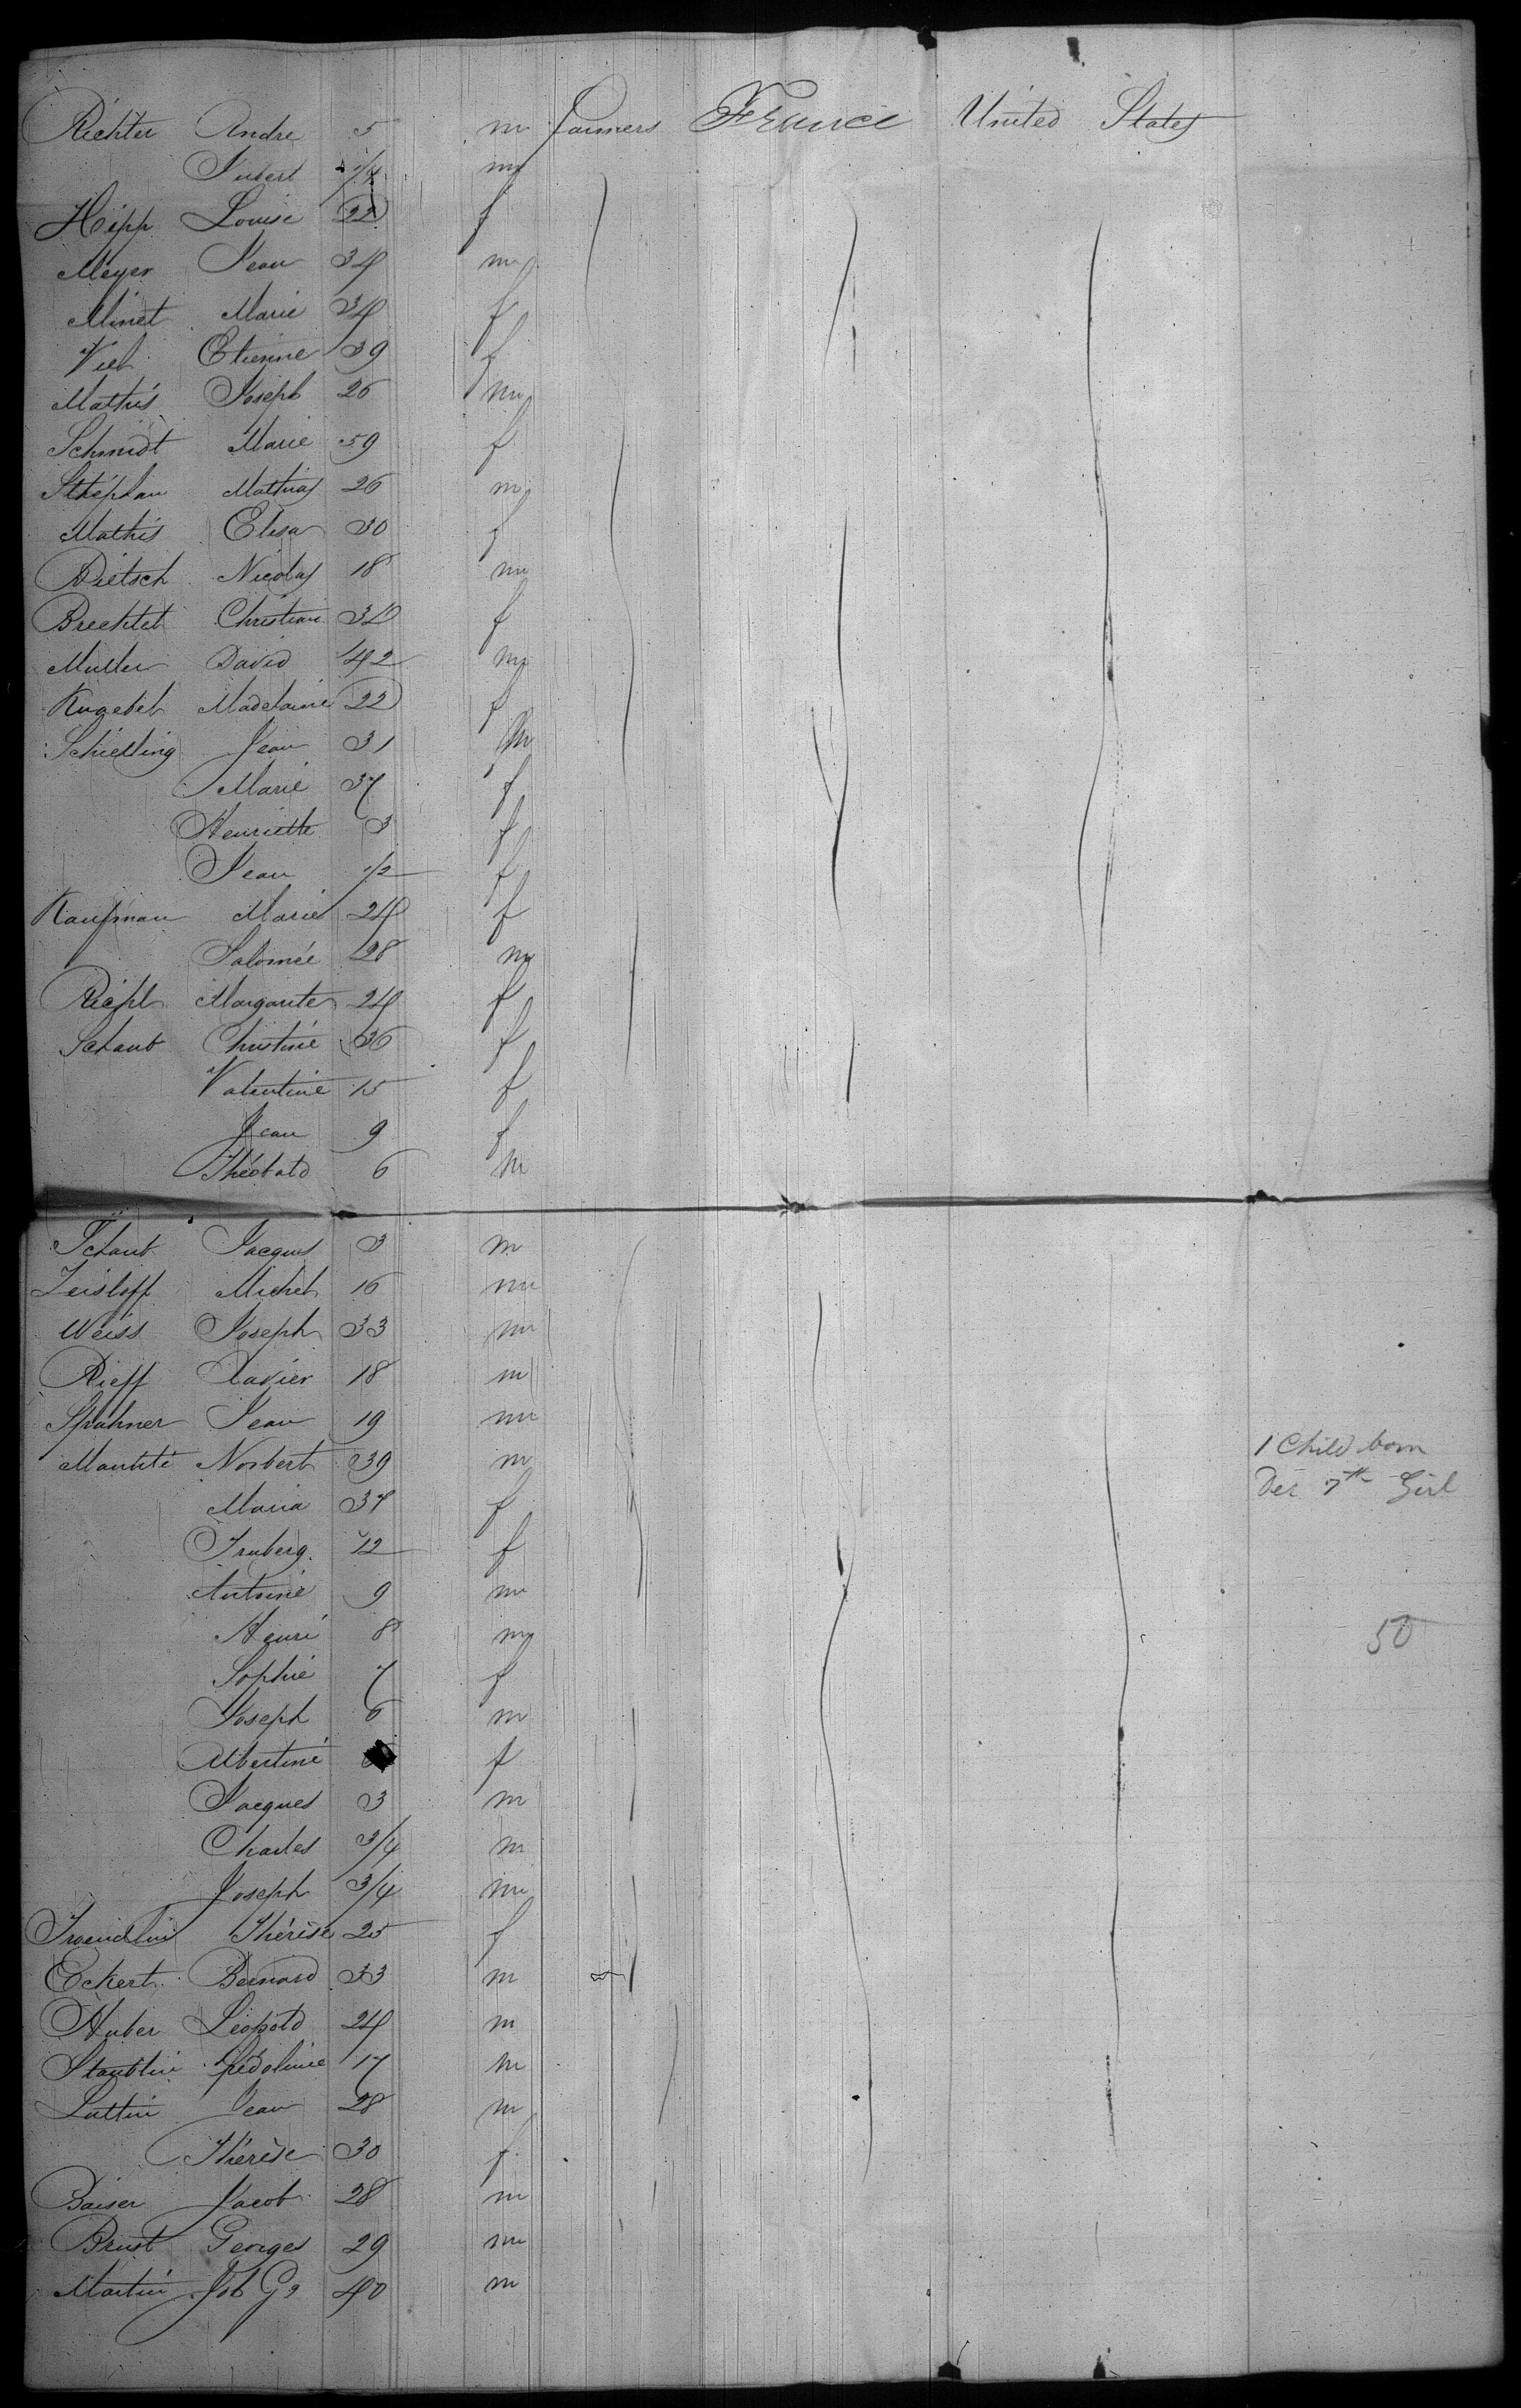 Richter Andre 5 m farmers France United States
Hubert 3/4 m
Hepp Louise 22 f
Meyer Jean 34 m
Minet Marie 34 f
Viel Etienne 39 f
Mathis Joseph 26 m
Schmidt Marie 59 f
Stéphan Mathias 26 m
Mathis Elisa 30 f
Dietsch Nicolas 18 m
Brechtel Christian f
Muller David 42 m
Kugebel Madelaine 22 f
Schielling Jean 31 m
Marie 37 f
Henriette 3 f
Jean 1/2 f
Kaufman Marie 24 f
Salomée 28 m
Riehl Margarite 24 f
Schaub Christine 36 f
Valentine 15 f
Jean 9 f
Théobald 6 m
Schaub Jacques 3 m
Zeisloff Michel 16 m
Weiss Joseph 33 m
Rieff Xavier 18 m
Spahner Jean 19 m
Norbert 39 m 1 Child born
Maria 37 f Dec 7th Girl
12 f
Antoine 9 m
Henri 8 m 50
Sophie 7 f
Joseph 6 m
Albertine f
Jacques 3 m
Charles 3/4 m
Joseph 3/4 m
Thérèse 25 f
Eckert Bernard 33 m
Huber Léopold 24 m
Staublin 17 m
Luttin Jean 28 m
Thérèse 30 f
Baiser Jacob 28 m
Brust Georges 29 m
Martin Job Gs 40 m